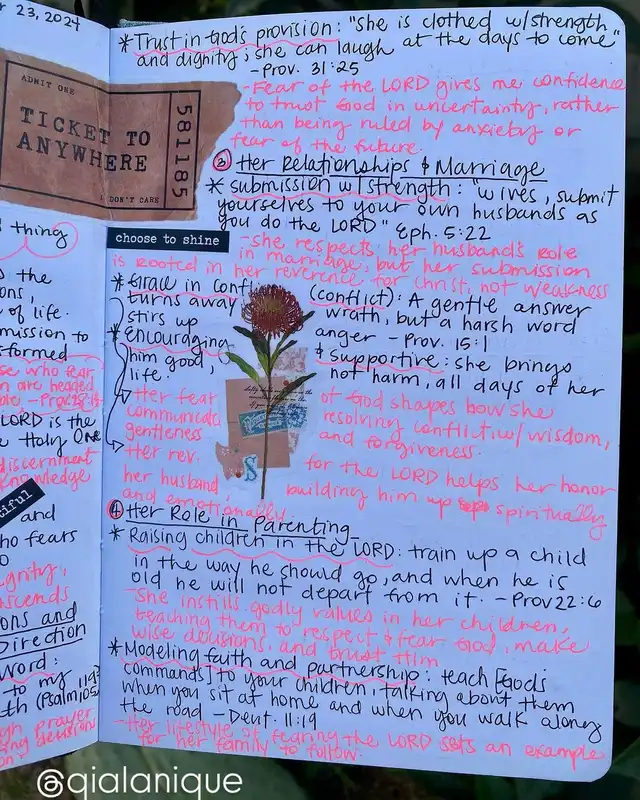 r 23, 2024
ADMIT ONE
TICKET TO
ANYWHERE
I DON'T CARE
581185
thing
s the
ons,
of life.
mission to
sformed
se who fear
n are headed
LORD is the
e Holy One
discernment
knowledge
tiful
and
ho fears
o
ignity,
nscends
ons and
Direction
Word:
to my
th (Psalm 119:
105
gh prayer
ng decision
* Trust in God's provision: "she is clothed w/strength
and dignity; she can laugh at the days to come"
- Prov. 31:25
- Fear of the LORD gives me confidence
to trust God in uncertainty, rather
than being ruled by anxiety or
fear of the future.
③ Her Relationships & Marriage
* submission w/strength: "wives, submit
yourselves to your own husbands as
you do the LORD" Eph. 5:22
choose to shine
- she respects her husband's role
in marriage, but her submission
is rooted in her reverence for Christ, not weakness
* Grace in Confl (conflict): A gentle answer
turns away wrath, but a harsh word
stirs up anger - Prov. 15:1
* Encouraging & supportive: she brings
him good, not harm, all days of her
life.
Her fear of God shapes how she
communicate resolving conflict w/ wisdom,
gentleness and forgiveness.
Her rev. for the LORD helps her honor
her husband, building him up spiritually
and emotionally.
④ Her Role in Parenting
* Raising children in the LORD: train up a child
in the way he should go, and when he is
old he will not depart from it. - Prov 22:6
- She instills godly values in her children,
teaching them to respect & fear God, make
wise decisions, and trust Him
* Modeling faith and partnership: teach [God's
commands] to your children, talking about them
when you sit at home and when you walk along
the road - Deut. 11:19
- Her lifestyle of fearing the LORD sets an example
for her family to follow.
@qialanique